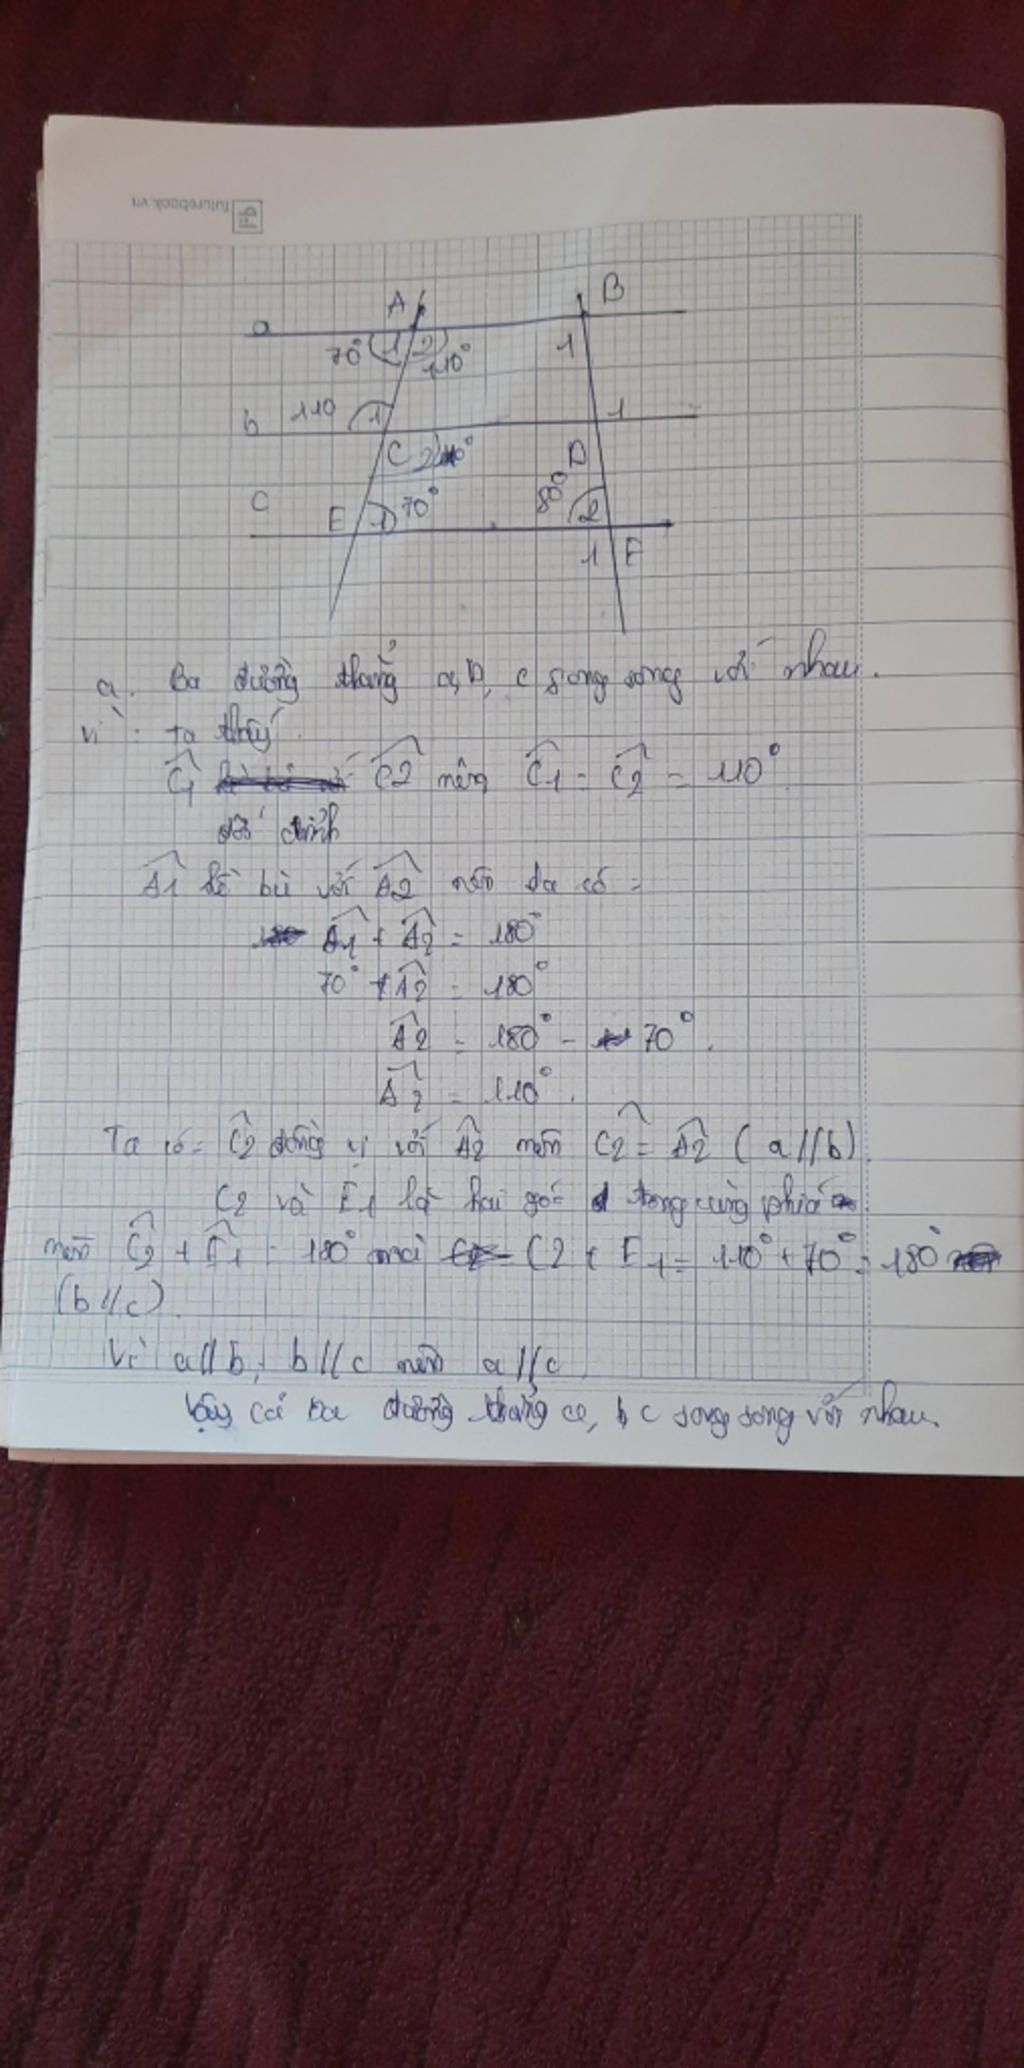 futurebook.vn
A B
a
70° 1 2 110° 1
b 110 1 1
C 2 D
c
E 1 70° 80° 2
1 F
a. Ba đường thẳng a, b, c song song với nhau.
Vì : ta thấy
C1 C2 nên C1 = C2 = 110°
đối đỉnh
A1 kề bù với A2 nên ta có :
A1 + A2 = 180°
70° + A2 = 180°
A2 = 180° - 70°.
A2 = 110°.
Ta có = C2 đồng vị với A2 nên C2 = A2 (a//b)
C2 và E1 là hai góc trong cùng phía
nên C2 + E1 = 180° mà C2 + E1 = 110° + 70° = 180°
(b//c)
Vì a//b, b//c nên a//c
Vậy cả ba đường thẳng a, b c song song với nhau.